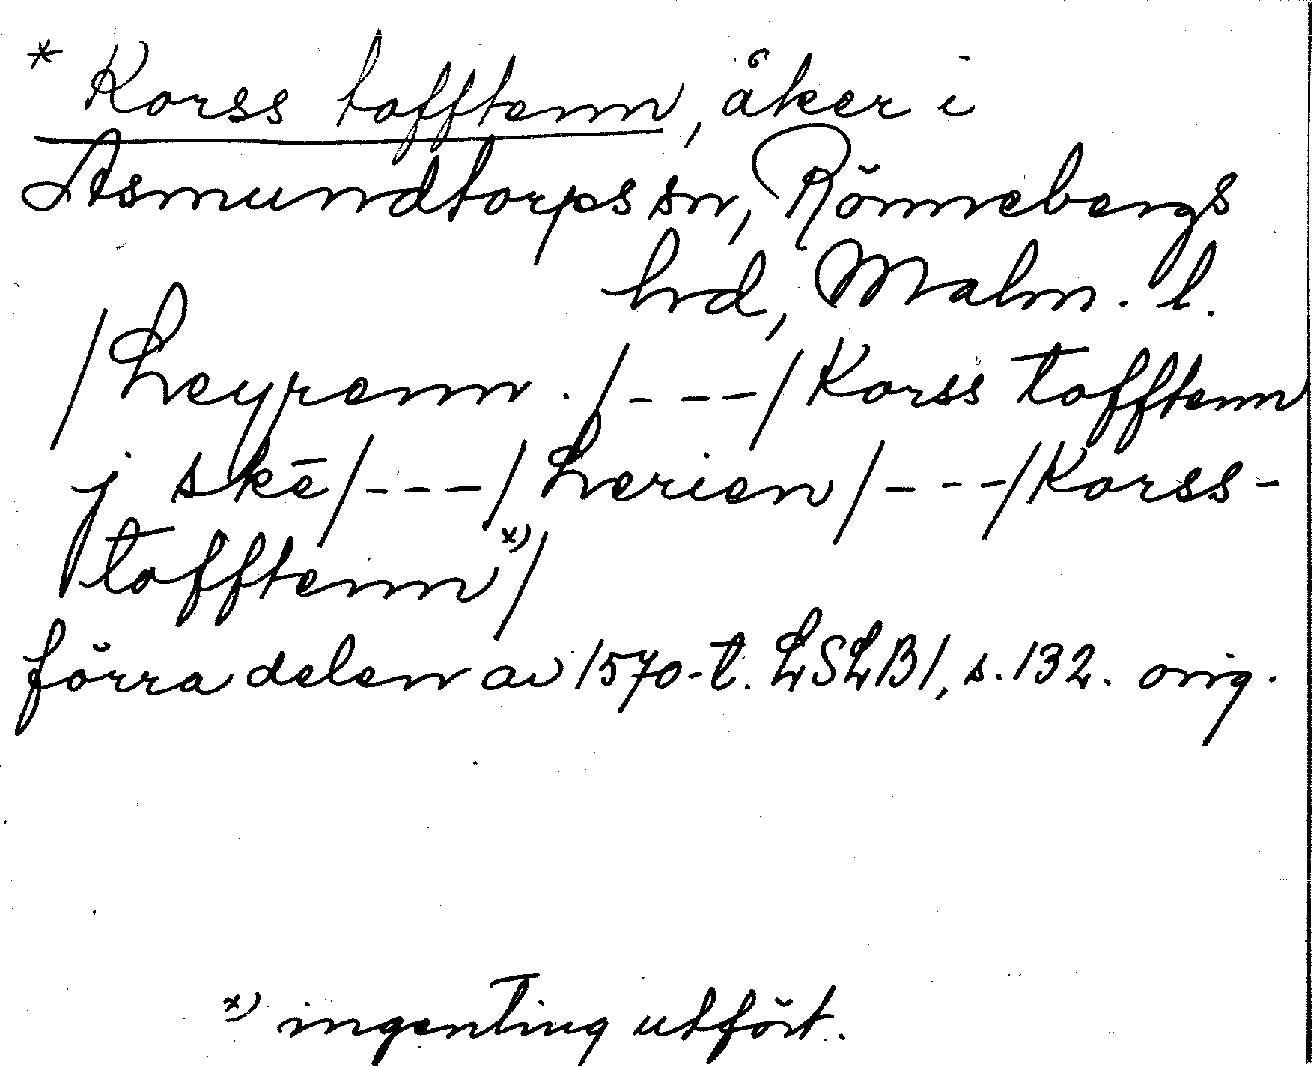 * Korss tofftenn, åker i
Asmundtorps sn, Rönnebergs
hrd, Malm. l.
/Leyrenn./---/Korss Tofftenn
j skē/---/Lerien/---/Korss-
tofftenn*)/
förra delen av 1570-t. LSLB1, s. 132. orig.
*) ingenting utfört.